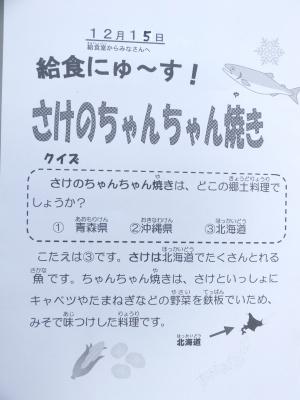 12月15日
給食室からみなさんへ
給食にゅ～す！
さけのちゃんちゃん焼き
クイズ
さけのちゃんちゃん焼きは、どこの郷土料理で
しょうか？
① 青森県 ②沖縄県 ③北海道
こたえは③です。さけは北海道でたくさんとれる
魚です。ちゃんちゃん焼きは、さけといっしょに
キャベツやたまねぎなどの野菜を鉄板でいため、
みそで味つけした料理です。
北海道